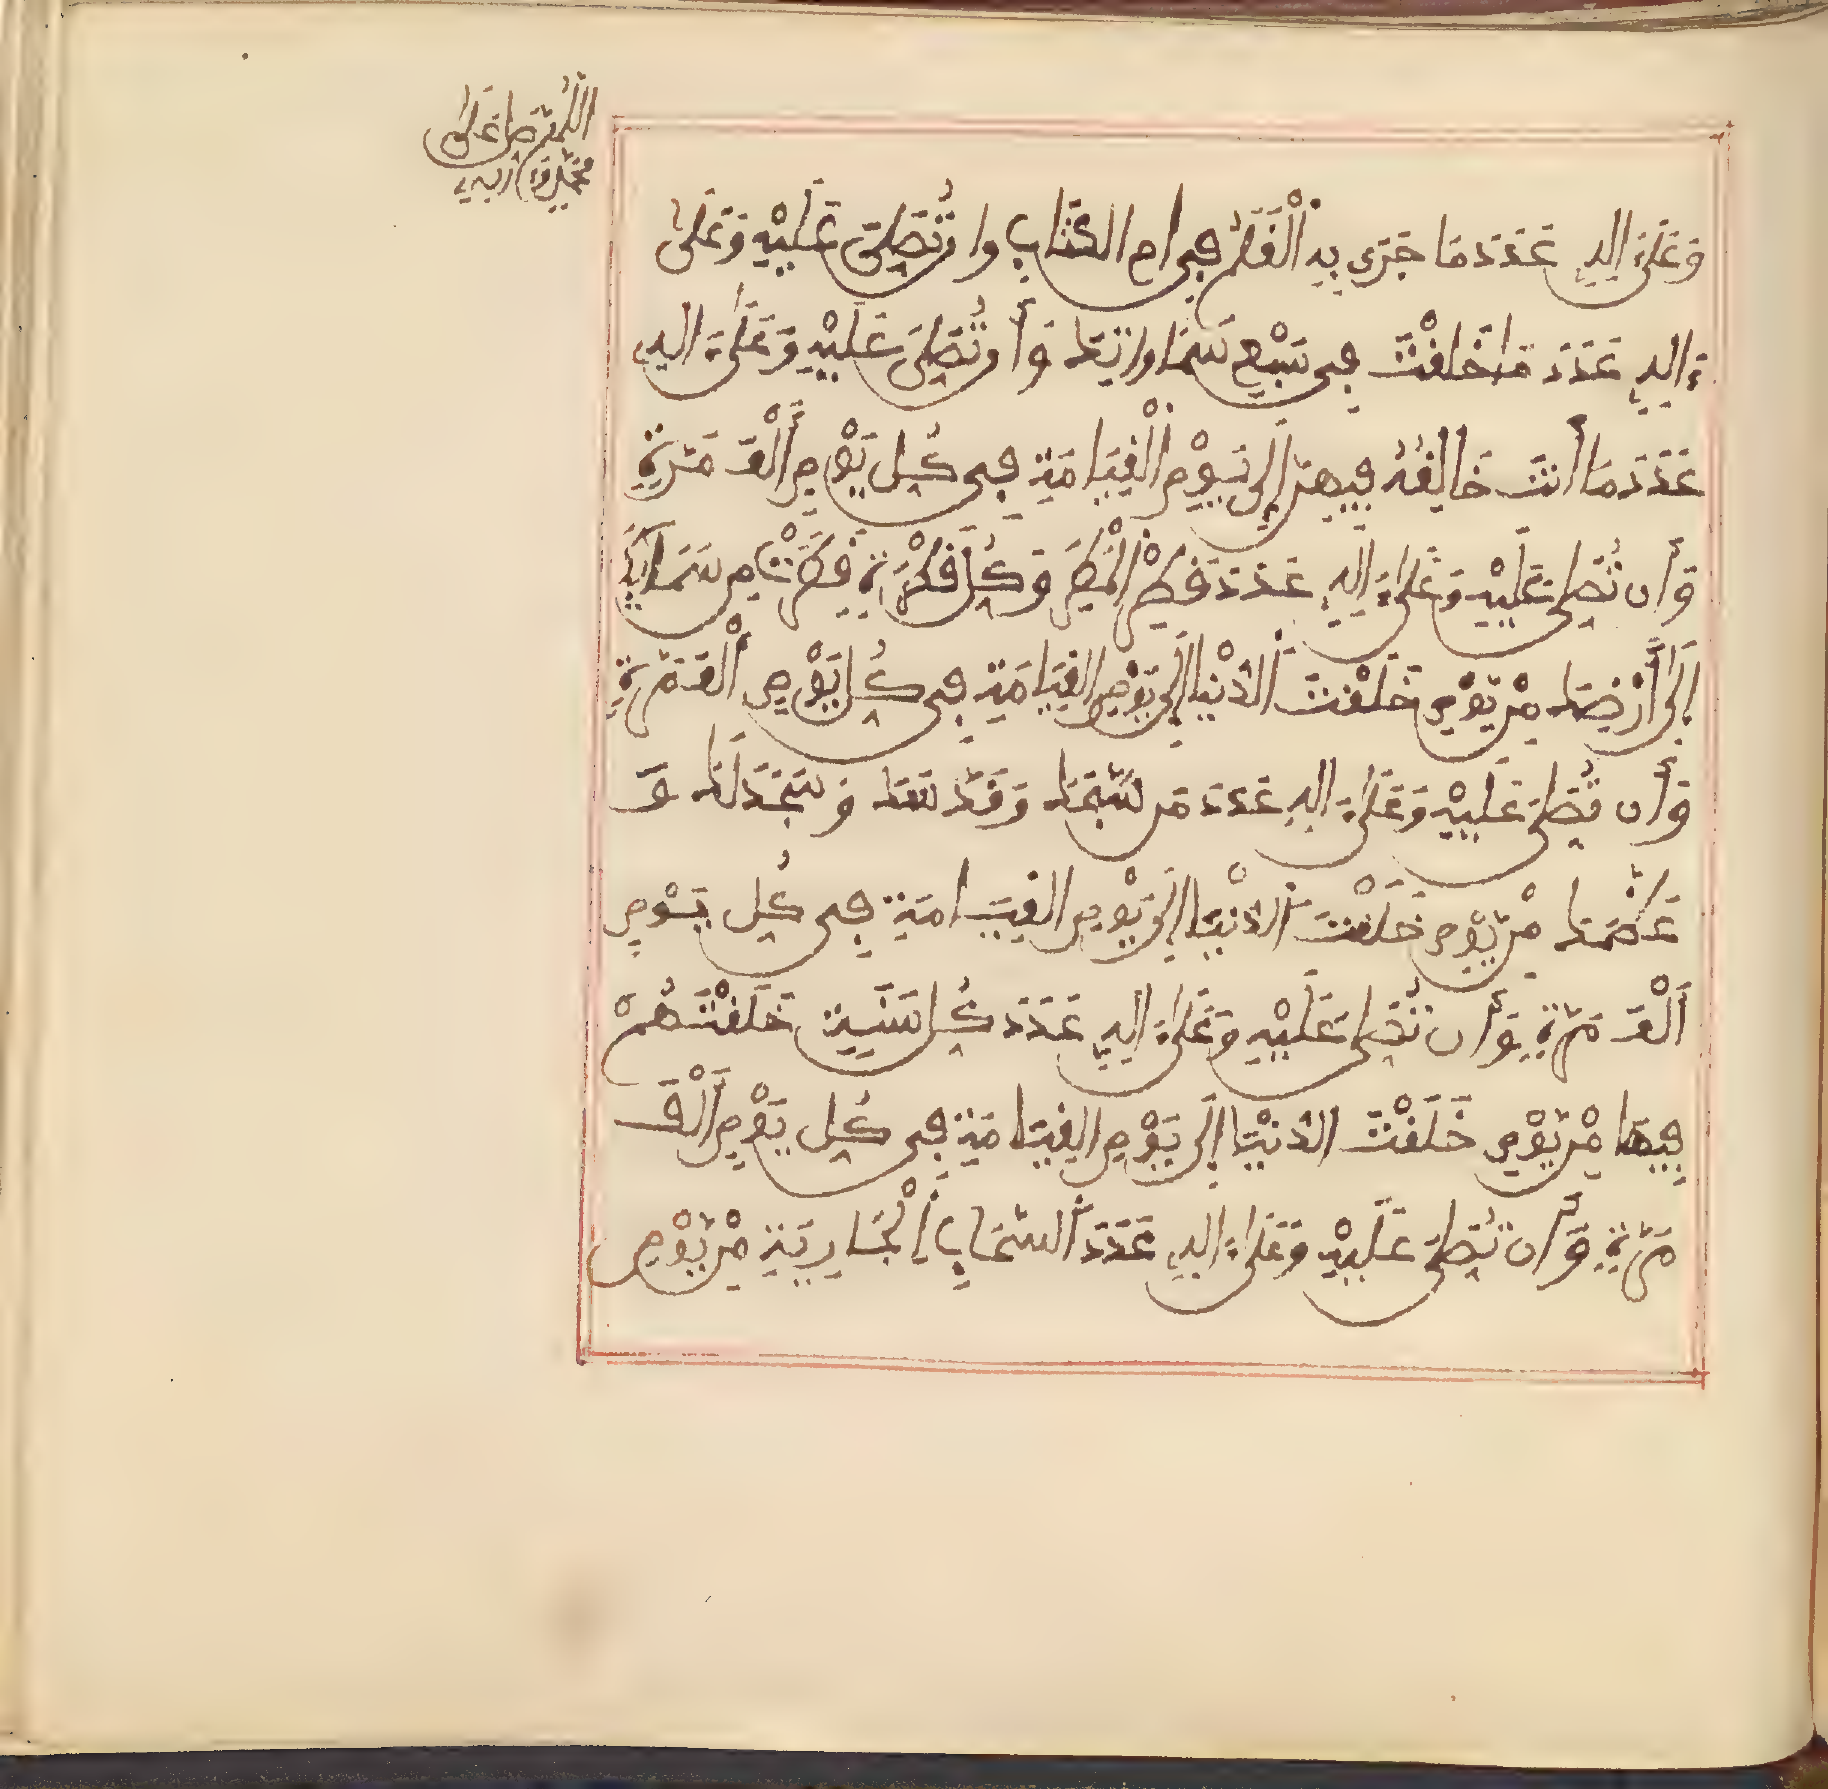 اللهم صل على
محمد وءاله
وَعَلَىٰٓ ءَالِهِۦ عَدَدَ مَا جَرَىٰ بِهِ اِلْقَلَمُ فِى امِّ الكِتَابِ وان تُصَلِّىَ عَلَيْهِ وَعَلَىٰ
ءَالِهِ عَدَدَ مَا خَلَقْتَ فِى سَبْعِ سَمَاوَاتِكَ وَأَن تُصَلِّىَ عَلَيْهِ وَعَلَىٰٓ ءَالِهِ
عَدَدَ مَا أَنتَ خَالِقُهُ فِيهِنَّ إِلَى يَوْمِ اِلْقِيَامَةِ فِى كُلِّ يَوْمٍ أَلْفَ مَرَّةٍ
وَأَن تُصَلِّىَ عَلَيْهِ وَعَلَىٰٓ ءَالِهِ عَدَدَ قَطْرِ اِلْمَطَرِ وَكُلِّ قَطْرَةٍ قَطَرَتْ مِن سَمَآئِكَ
إِلَىٰٓ أَرْضِكَ مِنْ يَوْمِ خَلَقْتَ اَلدُّنْيَا إِلَى يَوْمِ القِيَامَةِ فِى كُلِّ يَوْمٍ أَلْفَ مَرَّةٍ
وَأَن تُصَلِّىَ عَلَيْهِ وَعَلَىٰٓ ءَالِهِ عَدَدَ مَن سَبَّحَكَ وَقَدَّسَكَ وَسَجَدَ لَكَ وَ
عَظَّمَكَ مِنْ يَوْمِ خَلَقْتَ اَلدُّنْيَا إِلَى يَوْمِ القِيَامَةِ فِى كُلِّ يَوْمٍ
أَلْفَ مَرَّةٍ وَأَن تُصَلِّىَ عَلَيْهِ وَعَلَىٰٓ ءَالِهِ عَدَدَ كُلِّ سَنَةٍ خَلَقْتَهُمْ
فِيهَا مِنْ يَوْمِ خَلَقْتَ الدُّنْيَا إِلَى يَوْمِ القِيَامَةِ فِى كُلِّ يَوْمٍ أَلْفَ
مَرَّةٍ وَأَن تُصَلِّىَ عَلَيْهِ وَعَلَىٰٓ ءَالِهِ عَدَدَ اَلسَّحَابِ اِلْجَارِيَةِ مِنْ يَوْمِ